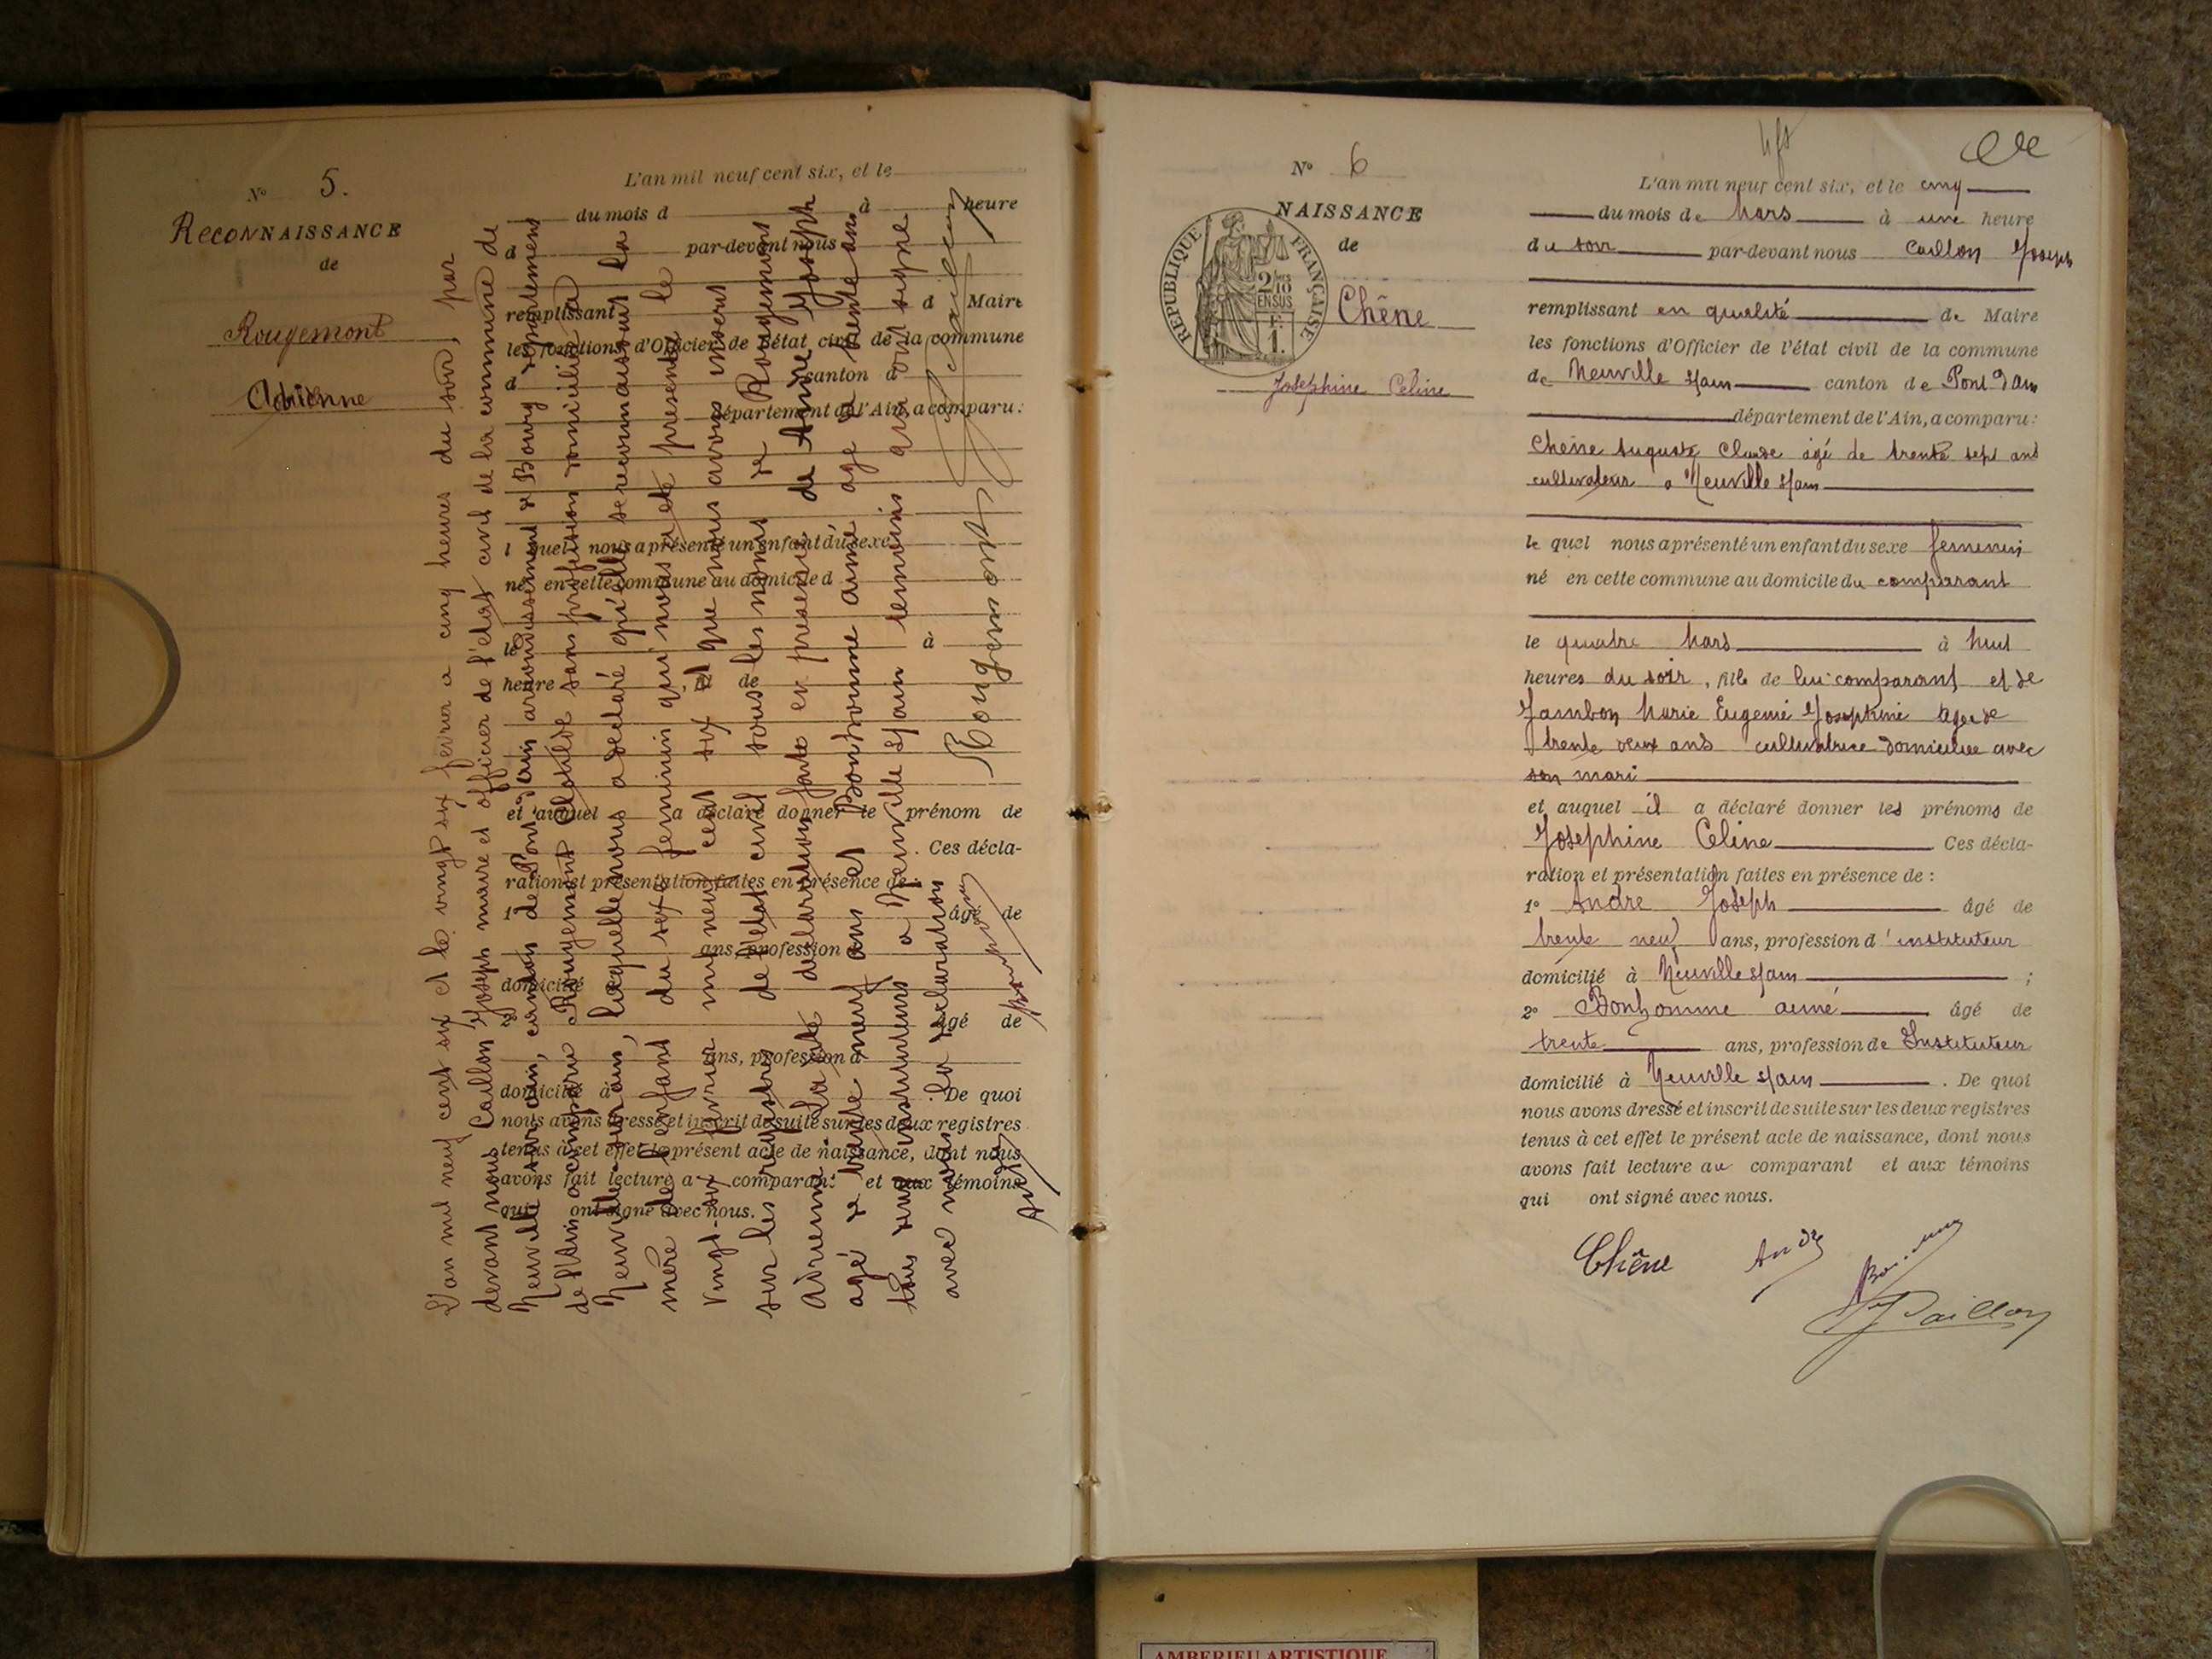 N° 5.
RECONNAISSANCE
de
Rougemont
Adrienne
L'an mil neuf cent six, et le
du mois d à heure
d par-devant nous
remplissant d Maire
les fonctions d'Officier de l'état civil de la commune
d canton d
département de l'Ain, a comparu:
l quel nous a présenté un enfant du sexe
né en cette commune au domicile d
le à
heure , fil de
et auquel a déclaré donner le prénom de
. Ces décla-
ration et présentation faites en présence de:
1° âgé de
ans, profession d
domicilié à
2° âgé de
ans, profession d
domicilié à . De quoi
nous avons dressé et inscrit de suite sur les deux registres
tenus à cet effet le présent acte de naissance, dont nous
avons fait lecture a comparant et aux témoins
qui ont signé avec nous.
L'an mil neuf cent six et le vingt six fevrier a cinq heures du soir, par
devant nous Caillon Joseph maire et officier de l'état civil de la commune de
Neuville sur ain, canton de Pont d'ain arrondissement de Bourg departement
de l'Ain a comparu Rougemont Clotilde sans profession domiciliée à
Neuville sur ain, laquelle nous a declaré qu'elle se reconnaissait la
mère de l'enfant du sexe feminin qui nous a été presenté le
vingt-six fevrier mil neuf cent six et que nous avons inscrit
sur les registres de l'état civil sous les noms de Rougemont
Adrienne La dite declaration faite en presence de André Joseph
agé de trente neuf ans et Bonhomme aimé age de trente ans
tous deux instituteurs a Neuville s/ain temoins qui ont signé
avec nous la declaration
Rougemont
J Caillon
André
Bonhomme
N° 6
NAISSANCE
de
REPUBLIQUE FRANÇAISE
2/10
EN SUS
F.
1.
Chêne
Joséphine Céline
L'an mil neuf cent six, et le cinq
du mois de Mars à une heure
du soir par-devant nous Caillon Joseph
remplissant en qualité de Maire
les fonctions d'Officier de l'état civil de la commune
de Neuville s/ain canton de Pont d'Ain
département de l'Ain, a comparu:
Chêne Auguste Claude âgé de trente sept ans
cultivateur a Neuville s/ain
le quel nous a présenté un enfant du sexe feminin
né en cette commune au domicile du comparant
le quatre Mars à huit
heures du soir, fille de lui comparant et de
Jambon Marie Eugenie Josephine agee de
trente deux ans cultivatrice domiciliee avec
son mari
et auquel il a déclaré donner les prénoms de
Josephine Celine Ces décla-
ration et présentation faites en présence de :
1° André Joseph âgé de
trente neuf ans, profession d'instituteur
domicilié à Neuville s/ain ;
2° Bonhomme aimé âgé de
trente ans, profession de Instituteur
domicilié à Neuville s/ain . De quoi
nous avons dressé et inscrit de suite sur les deux registres
tenus à cet effet le présent acte de naissance, dont nous
avons fait lecture au comparant et aux témoins
qui ont signé avec nous.
Chêne
André
J Caillon
AMBERIEU ARTISTIQUE